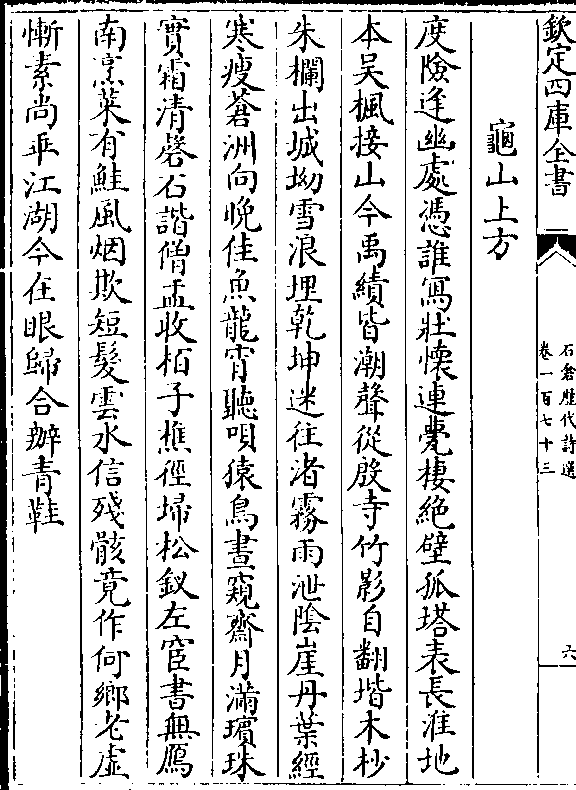 欽定四庫全書
石倉歷代詩選
卷一百七十三
六
龜山上方
度險逢幽處憑誰寫壯懷連甍棲絶壁孤塔表長淮地
本吴楓接山今禹績皆潮聲從殷寺竹影自翻堦木杪
朱欄出城坳雪浪埋乾坤迷往渚霧雨泄陰崖丹葉經
寒瘦蒼洲向晚佳魚龍宵聽唄猿鳥晝窺齋月滿璸珠
實霜清磬石諧僧盂收栢子樵徑埽松釵左宦書無鴈
南烹菜有鮭風烟欺短髪雲水信殘骸竟作何鄉老虚
慚素尚乖江湖今在眼歸合辦青鞋